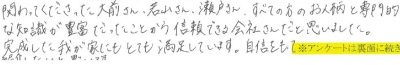 関わってくださった大前さん、若山さん、瀬戸さん、すべての方のお人柄と専門的
な知識が豊富だったことから信頼できる会社さんだと思いました。
完成した我が家にもとても満足しています。自信をもて
※アンケートは裏面に続き